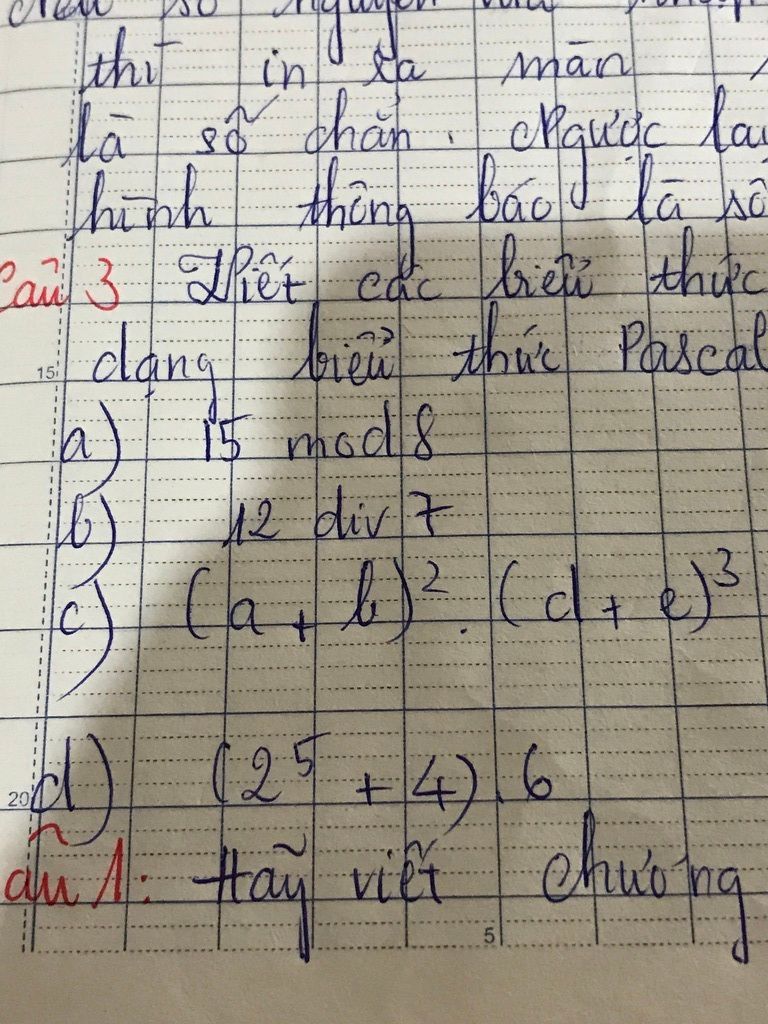 thì in ra màn
là số chẵn. Ngược lại
hình thông báo là số
Câu 3 Viết các biểu thức
dạng biểu thức Pascal
a) 15 mod 8
b) 12 div 7
c) (a + b)². (d + e)³
15
d) (2⁵ + 4). 6
20
âu 1: Hãy viết chương
5